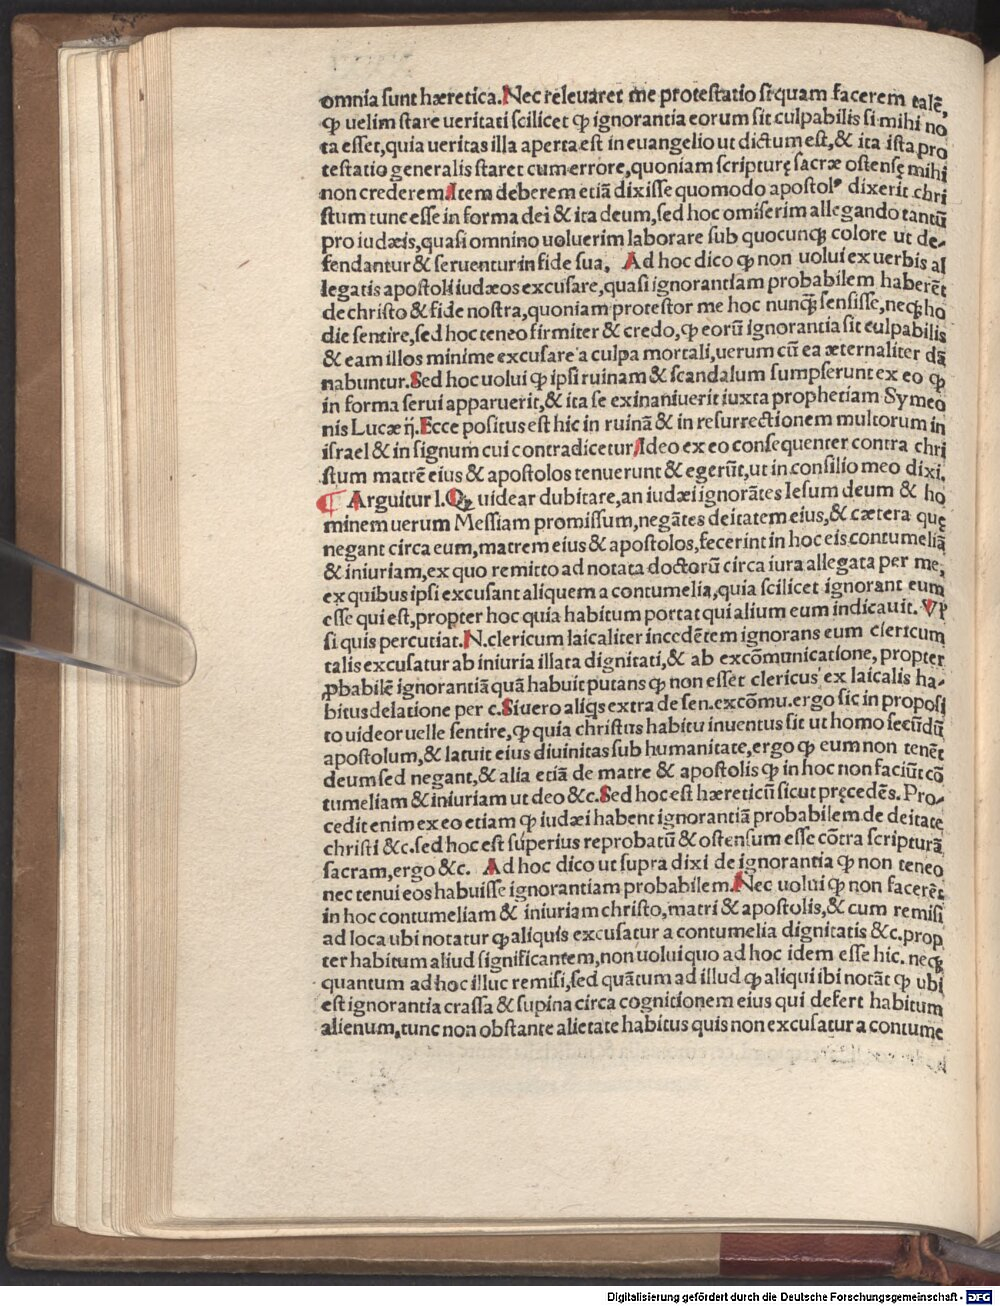 omnia sunt hæretica. Nec releuaret me protestatio si quam facerem talē,
ꝙ uelim stare ueritati scilicet ꝙ ignorantia eorum sit culpabilis si mihi no
ta esset, quia ueritas illa aperta est in euangelio ut dictum est, & ita ista pro
testatio generalis staret cum errore, quoniam scripturę sacræ ostensę mihi
non crederem. Item deberem etiā dixisse quomodo apostolꝰ dixerit chri
stum tunc esse in forma dei & ita deum, sed hoc omiserim allegando tantū
pro iudæis, quasi omnino uoluerim laborare sub quocunqꝫ colore ut de-
fendantur & seruentur in fide sua. Ad hoc dico ꝙ non uolui ex uerbis al
legatis apostoli iudæos excusare, quasi ignorantiam probabilem haberēt
de christo & fide nostra, quoniam protestor me hoc nunqꝫ sensisse, neqꝫ ho
die sentire, sed hoc teneo firmiter & credo, ꝙ eorū ignorantia sit culpabilis
& eam illos minime excusare a culpa mortali, uerum cū ea æternaliter dā
nabuntur. Sed hoc uolui ꝙ ipsi ruinam & scandalum sumpserunt ex eo ꝙ
in forma serui apparuerit, & ita se exinaniuerit iuxta prophetiam Symeo
nis Lucæ ij. Ecce positus est hic in ruinā & in resurrectionem multorum in
israel & in signum cui contradicetur. Ideo ex eo consequenter contra chri
stum matrē eius & apostolos tenuerunt & egerūt, ut in consilio meo dixi.
¶ Arguitur l. Qꝫ uidear dubitare, an iudæi ignorātes Iesum deum & ho
minem uerum Messiam promissum, negātes deitatem eius, & cætera quę
negant circa eum, matrem eius & apostolos, fecerint in hoc eis contumeliā
& iniuriam, ex quo remitto ad notata doctorū circa iura allegata per me,
ex quibus ipsi excusant aliquem a contumelia, quia scilicet ignorant eum
esse qui est, propter hoc quia habitum portat qui alium eum indicauit. Vt
si quis percutiat. N. clericum laicaliter incedētem ignorans eum clericum
talis excusatur ab iniuria illata dignitati, & ab excōmunicatione, propter
ꝓbabilē ignorantiā quā habuit putans ꝙ non esset clericus ex laicalis ha-
bitus delatione per c. Si uero aliq̄s extra de sen. excōmu. ergo sic in proposi
to uideor uelle sentire, ꝙ quia christus habitu inuentus sit ut homo secūdū
apostolum, & latuit eius diuinitas sub humanitate, ergo ꝙ eum non tenēt
deum sed negant, & alia etiā de matre & apostolis ꝙ in hoc non faciūt cō
tumeliam & iniuriam ut deo &c. Sed hoc est hæreticū sicut pręcedēs. Pro-
cedit enim ex eo etiam ꝙ iudæi habent ignorantiā probabilem de deitate
christi &c. sed hoc est superius reprobatū & ostensum esse cōtra scripturā
sacram, ergo &c. Ad hoc dico ut supra dixi de ignorantia ꝙ non teneo
nec tenui eos habuisse ignorantiam probabilem. Nec uolui ꝙ non facerēt
in hoc contumeliam & iniuriam christo, matri & apostolis, & cum remisi
ad loca ubi notatur ꝙ aliquis excusatur a contumelia dignitatis &c. prop
ter habitum aliud significantem, non uolui quo ad hoc idem esse hic. neqꝫ
quantum ad hoc illuc remisi, sed quātum ad illud ꝙ aliqui ibi notāt ꝙ ubi
est ignorantia crassa & supina circa cognitionem eius qui defert habitum
alienum, tunc non obstante alietate habitus quis non excusatur a contume
Digitalisierung gefördert durch die Deutsche Forschungsgemeinschaft - DFG